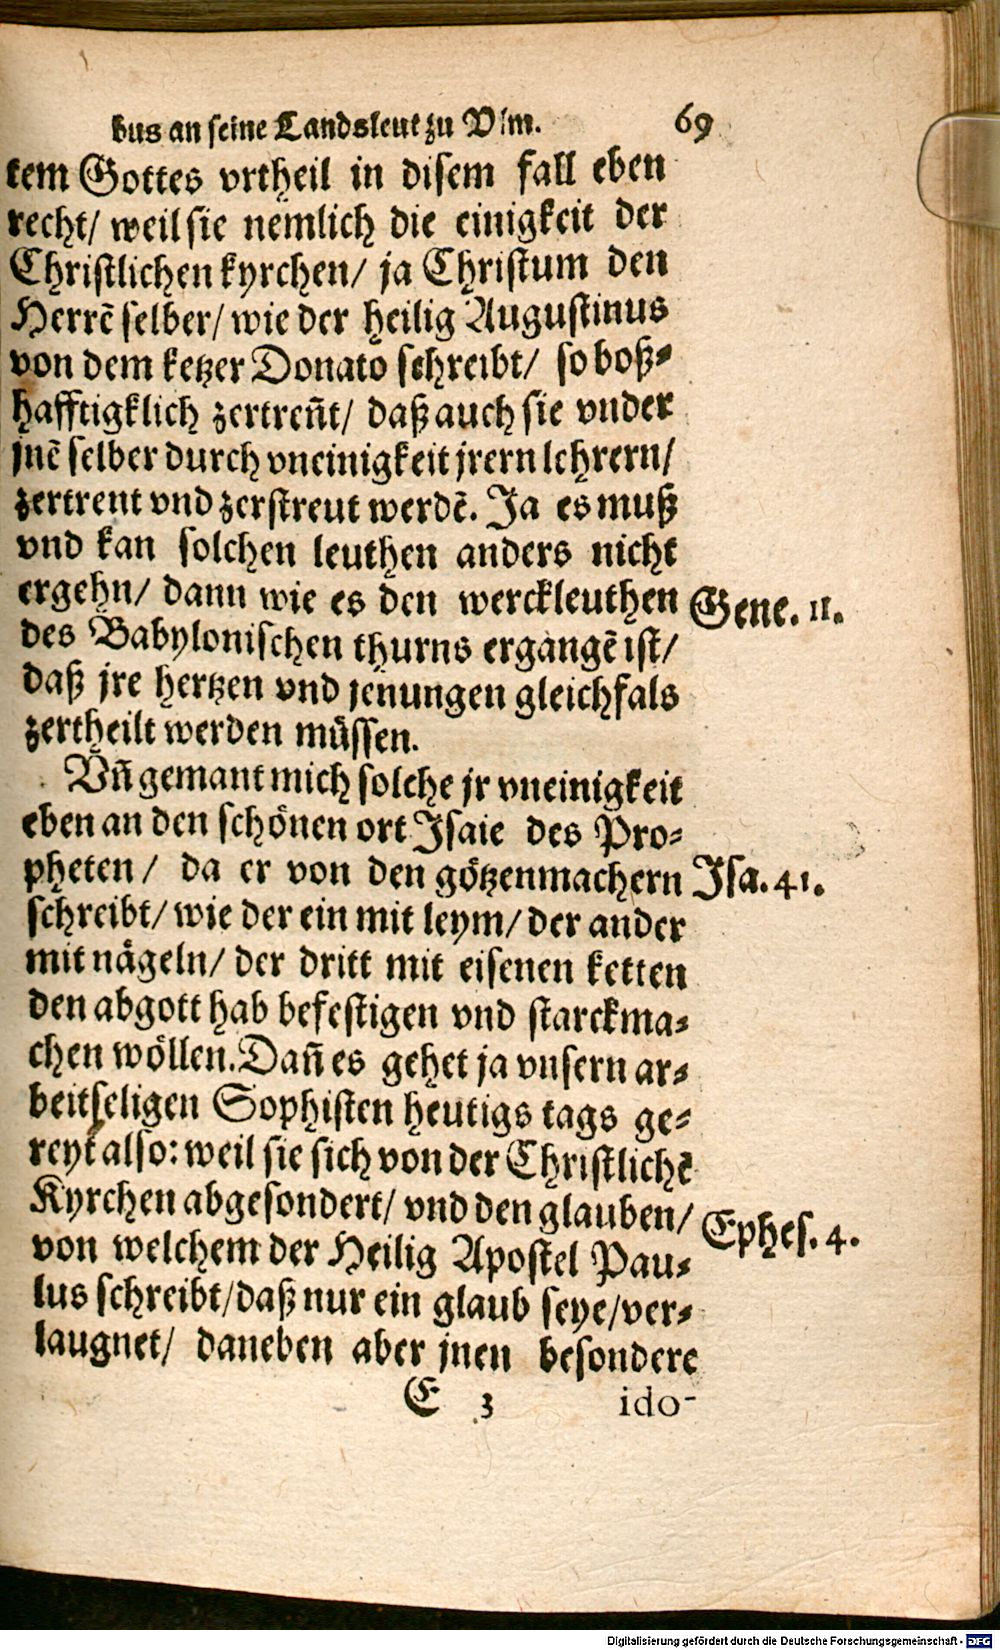 bus an seine Landsleut zu Vlm. 69
tem Gottes vrtheil in disem fall eben
recht/ weil sie nemlich die einigkeit der
Christlichen kyrchen/ ja Christum den
Herrẽ selber/ wie der heilig Augustinus
von dem ketzer Donato schreibt/ so boß⸗
hafftigklich zertreñt/ daß auch sie vnder
jnẽ selber durch vneinigkeit jrern lehrern/
zertrent vnd zerstreut werdẽ. Ja es muß
vnd kan solchen leuthen anders nicht
ergehn/ dann wie es den werckleuthen Gene. 11.
des Babylonischen thurns ergangẽ ist/
daß jre hertzen vnd jenungen gleichfals
zertheilt werden müssen.
Vñ gemant mich solche jr vneinigkeit
eben an den schönen ort Isaie des Pro⸗
pheten/ da er von den götzenmachern Isa. 41.
schreibt/ wie der ein mit leym/ der ander
mit nägeln/ der dritt mit eisenen ketten
den abgott hab befestigen vnd starckma⸗
chen wöllen. Dañ es gehet ja vnsern ar⸗
beitseligen Sophisten heutigs tags ge⸗
reyt also: weil sie sich von der Christlichẽ
Kyrchen abgesondert/ vnd den glauben/ Ephes. 4.
von welchem der Heilig Apostel Pau⸗
lus schreibt/ daß nur ein glaub seye/ ver⸗
laugnet/ daneben aber jnen besondere
E 3 ido-
Digitalisierung gefördert durch die Deutsche Forschungsgemeinschaft - DFG